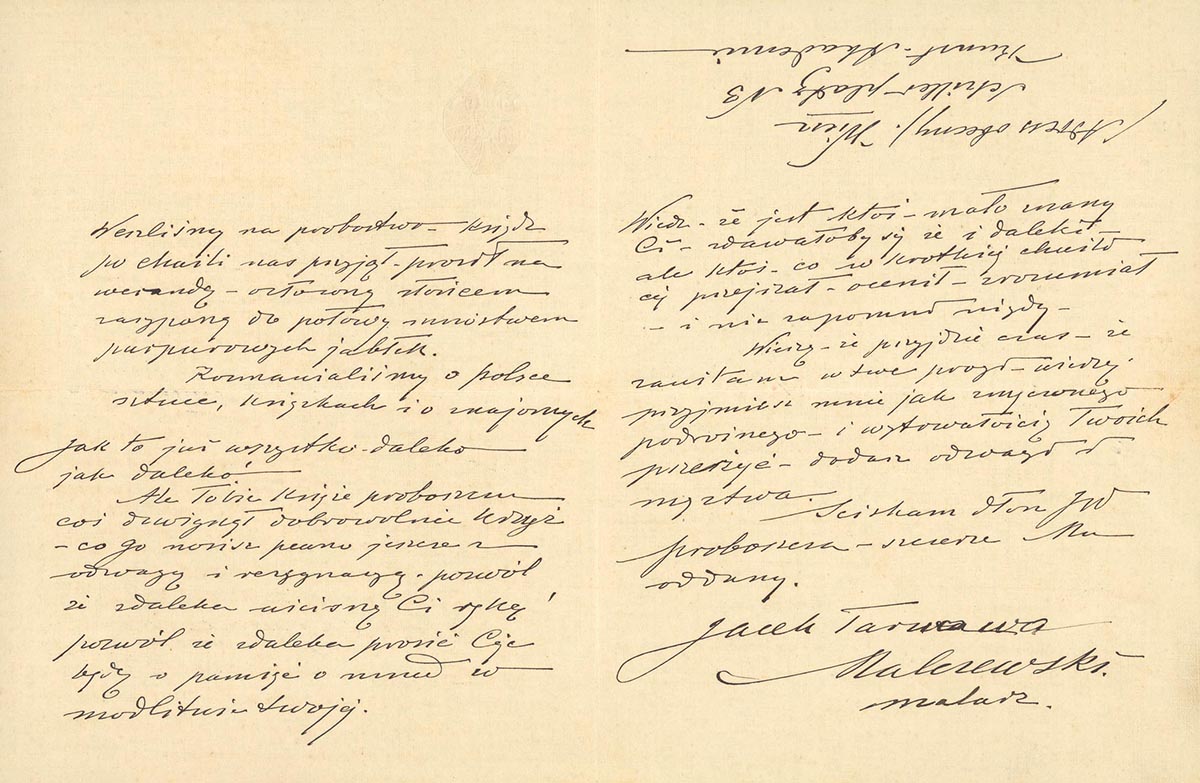 Weszliśmy na probostwo – ksiądz
po chwili nas przyjął – prosił na
werandę – ozłoconą słońcem
zasypaną do połowy mnóstwem
purpurowych jabłek.
Rozmawialiśmy o polsce
sztuce, książkach i o znajomych
Jak to już wszystko daleko
jak daleko
Ale Tobie księże proboszczu
coś dźwignął dobrowolnie krzyż
– co go nosisz pewno jeszcze z
odwagą i rezygnacją – pozwól
że zdaleka uścisnę Ci rękę
pozwól że zdaleka prosić Cię
będę o pamięć o mnie w
modlitwie twojej.
Wiedz – że jest ktoś – mało znany
Ci – zdawałoby się że i daleki –
ale ktoś – co w krótkiej chwili
cię przejrzał – ocenił – zrozumiał
– i nie zapomni nigdy –
Wierzę – że przyjdzie czas – że
zawitam w twe progi – wierzę
przyjmiesz mnie jak
i Twoich
przeżyć – dodasz odwagi i
męztwa.
Ściskam dłoń
proboszcza – szczerze Mu
oddany.
Jacek Tarnawa
Malczewski.
malarz.
(Adres obecny). Wien
Schillerplatz N3
Kunst-Akademie